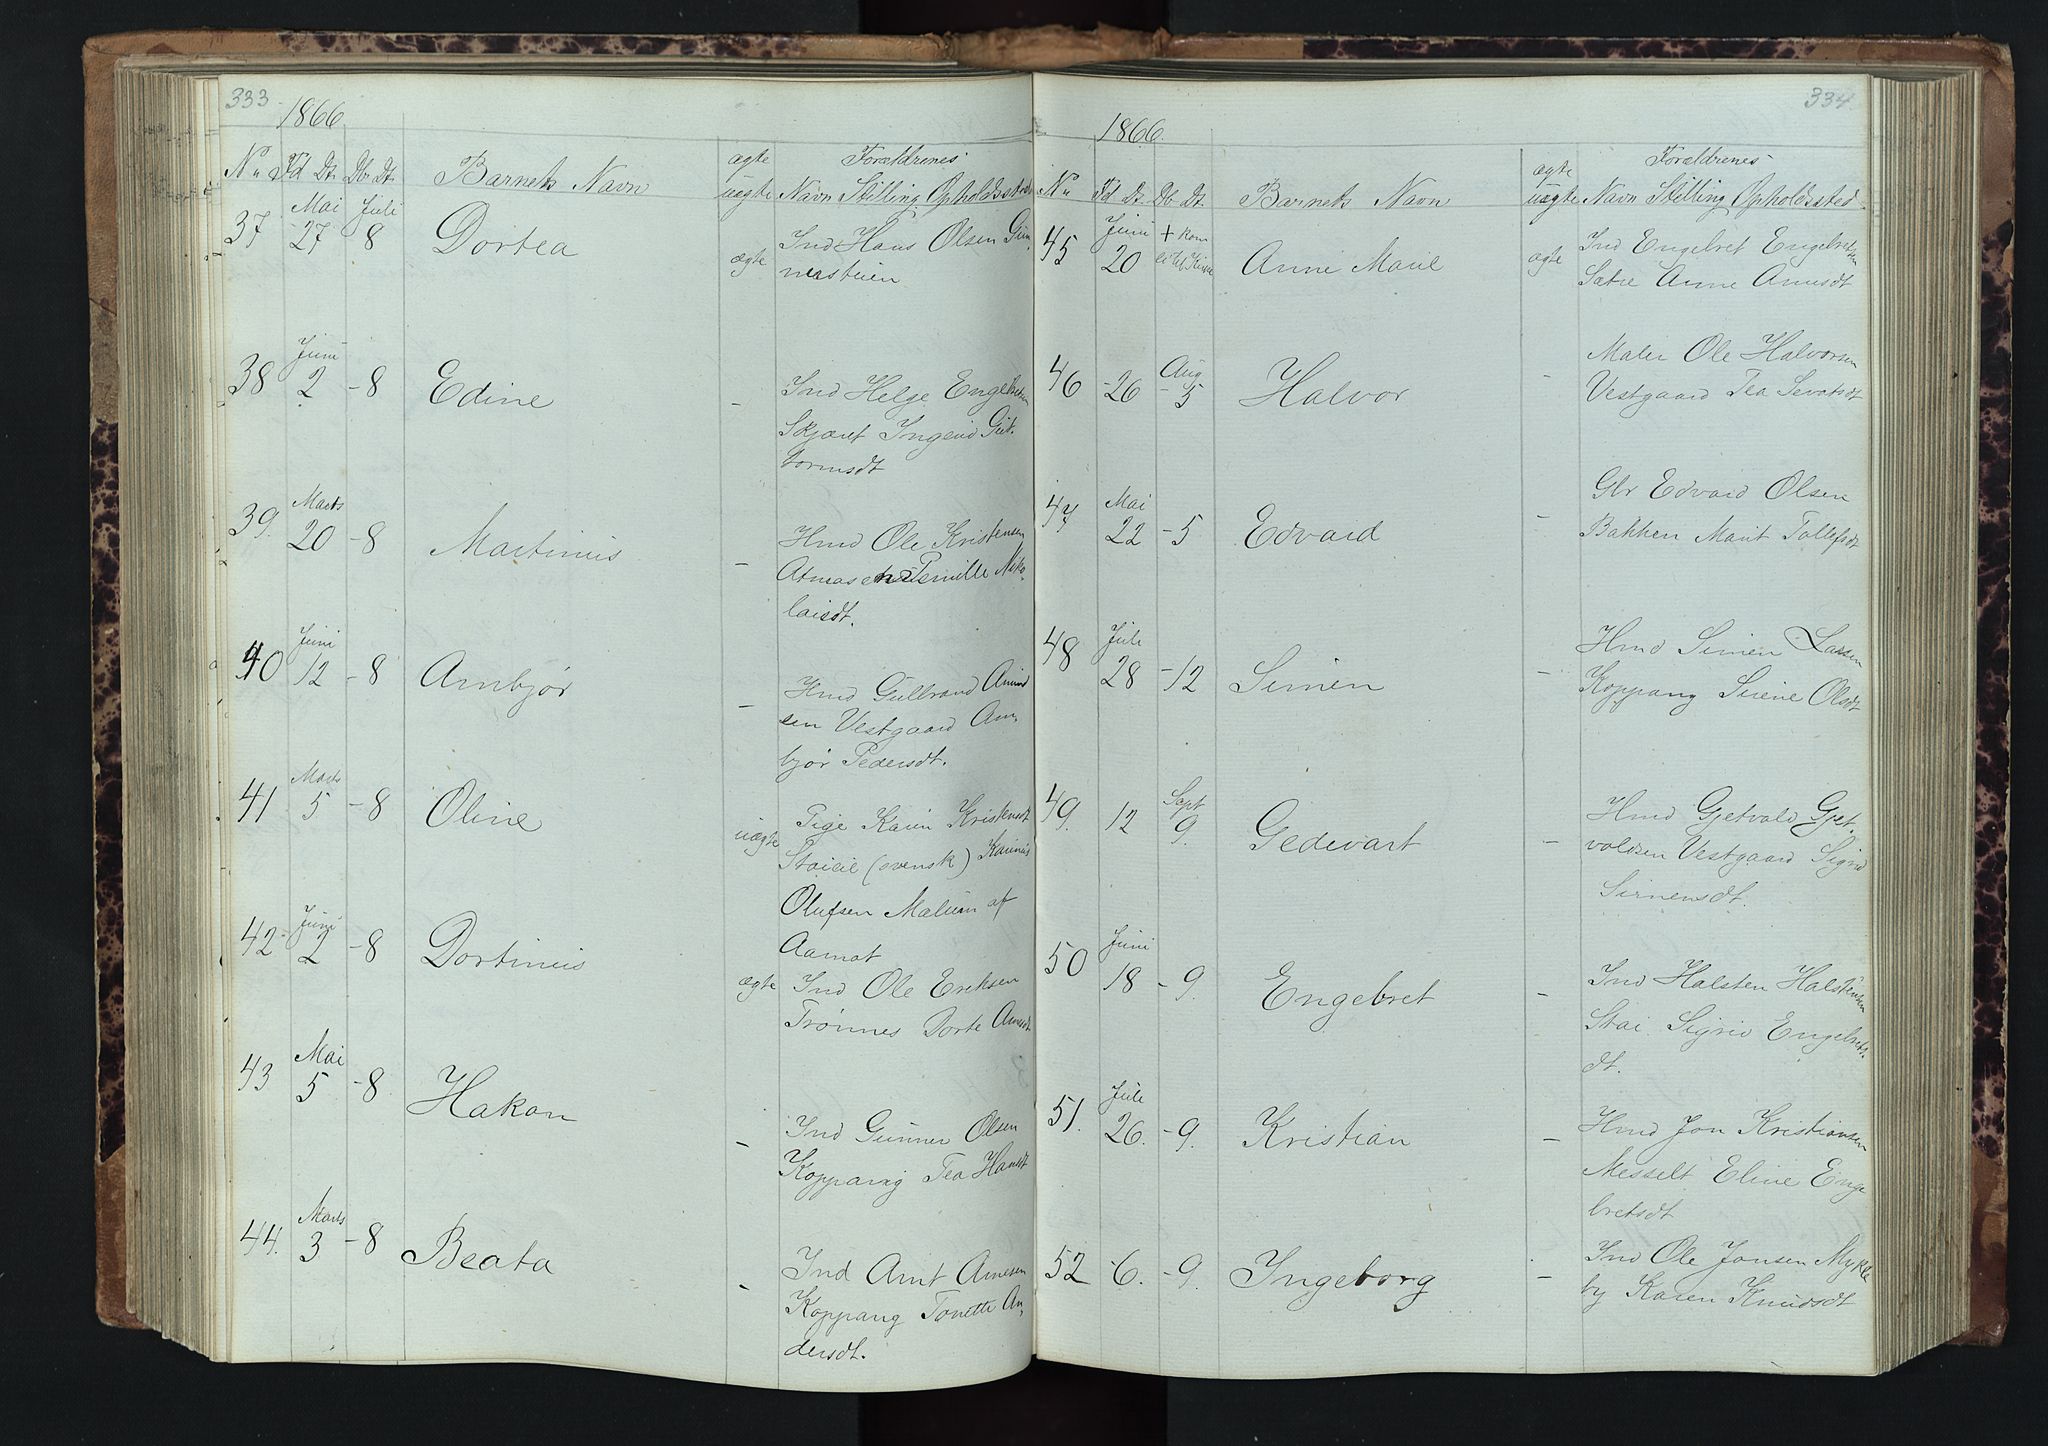 333
1866
No Fd Dt. Db Dt. Barnets Navn ægte uægte Forældrenes Navn Stilling Opholdssted
37 Mai 27 Juli 8 Dortea ægte Ind Hans Olsen Gun
nerstuen
38 Juni 2 - 8 Edine - Ind Helge Engebretsen
Skjæret Ingerid Gut-
tormsdt
39. Marts 20 - 8 Martinus - Hmd Ole Kristensen
Pernille Niko-
laisdt.
40 Juni 12 - 8 Arnbjør - Hmd Gulbrand Amund
sen Vestgaard Arn-
bjør Pedersdt.
41 Marts 5 - 8 Oline uægte Pige Karen Kristensdt
(svensk) Karinus
Olufsen Mælum af
Aamot
42 Juni 2 - 8 Dortinus ægte Ind Ole Eriksen
Trønnes Dorte Arnesdt
43 Mai 5 - 8 Hakon - Ind Gunner Olsen
Koppang Tea Hansdt
44. Marts 3 - 8 Beata - Ind Arnt Arnesen
Koppang Tonette An-
dersdt.
334.
1866.
No Fd Dt. Db Dt. Barnets Navn ægte uægte Forældrenes Navn Stilling Opholdssted
45 Juni 20 + kom ei til Kirke Anne Marie ægte Ind Engebret Engebretsen
Sætre Anne Arnesdt
46 - 26 Aug - 5 Halvor - Maler Ole Halvorsen
Vestgaard Tea Sevatsdt
47 Mai 22 - 5 Edvard - Gbr Edvard Olsen
Bakken Marit Tollefsdt
48 Juli 28 - 12 Simen - Hmd Simen Larsen
Koppang Sirene Olsdt
49. 12 Sept 9. Gedevart - Hmd Gjetvald Gjet-
valdsen Vestgaard Sigrid
Simensdt.
50 Juni 18 - 9. Engebret - Ind Halsten Halstensen
Stai Sigrid Engebrets-
dt.
51. Juli 26. - 9. Kristian - Hmd Jon Kristiansen
Messelt Eline Enge
bretsdt
52 - 6. - 9. Ingeborg - Ind Ole Jonsen Mykle
by Karen Knudsdt